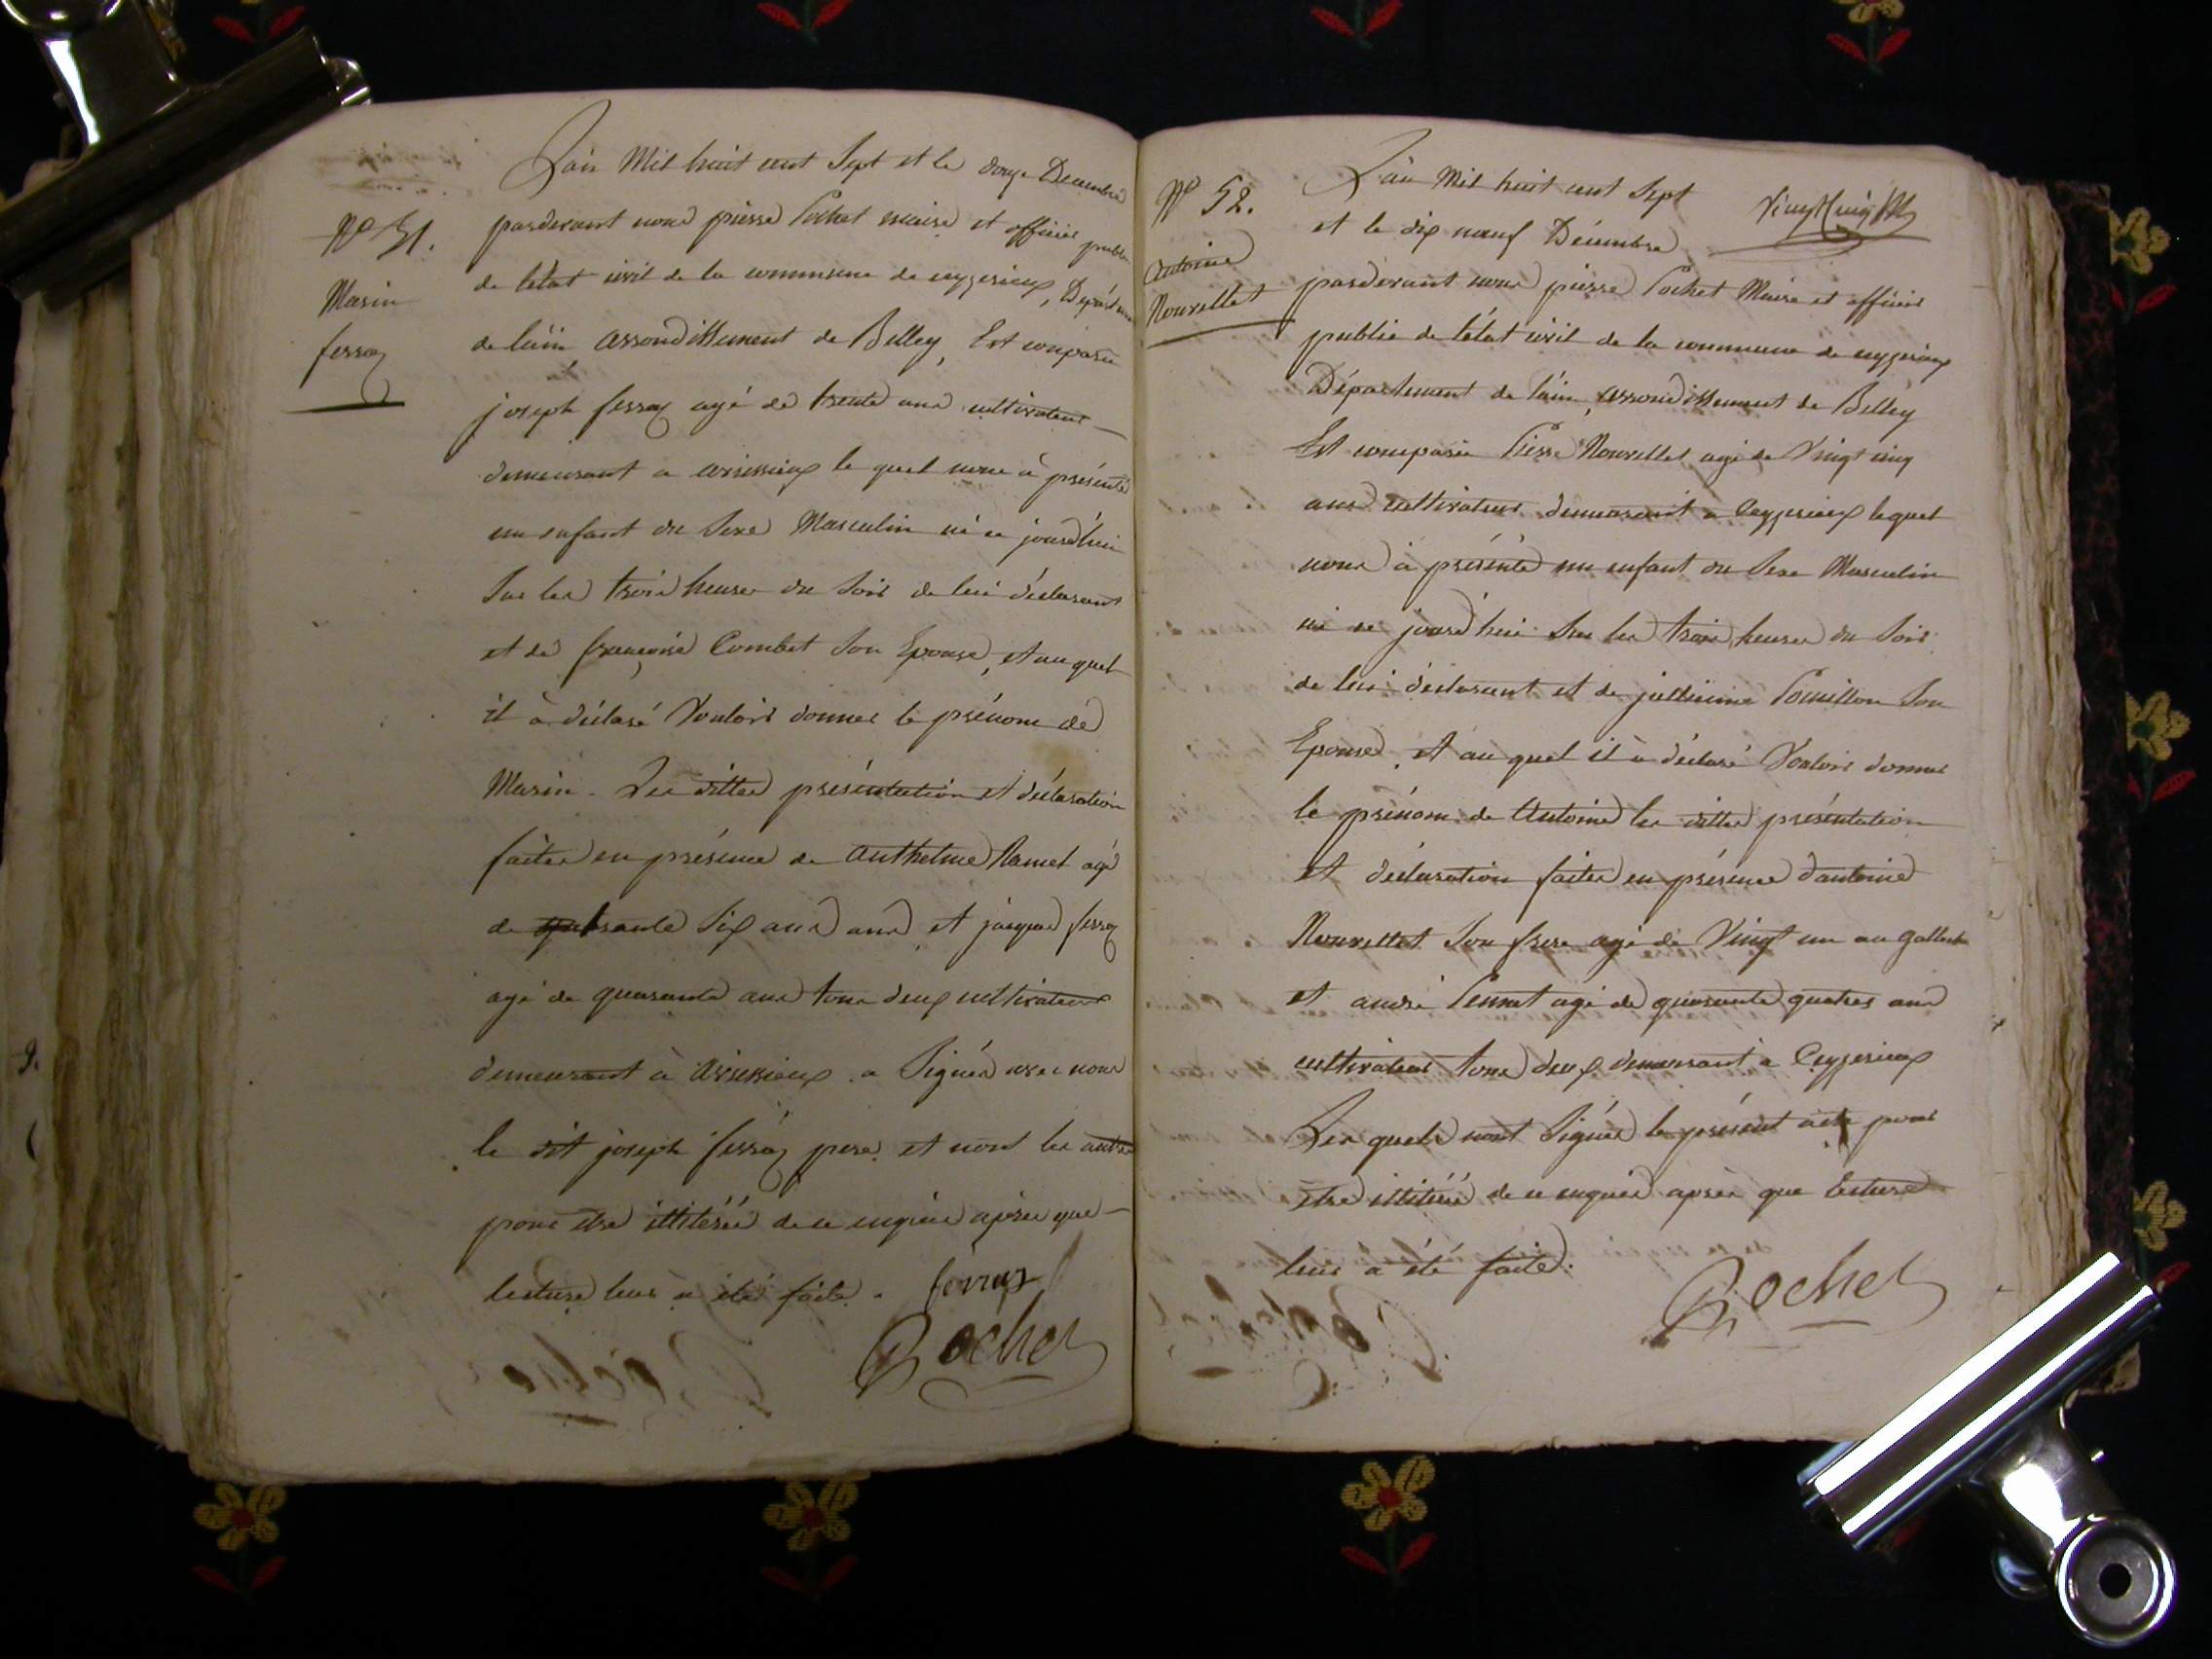 L'an Mil huit cent Sept et le douze Decembre
N° 51.
Marin
ferraz
pardevant nous pierre Pochet maire et officier public
de letat civil de la commune de ceyzerieux, Départem
de l'ain, arrondissement de Belley, Est comparu
joseph ferraz agé de trente ans cultivateur
demeurant a avrissieux le quel nous à présenté
un enfant du Sexe Masculin né ce jourd'hui
Sur les trois heures du Soir de lui déclarant
et de françoise Combet Son Epouse, et au quel
il à déclaré Vouloir donner le prénom de
Marin. Les dittes présentation et déclaration
faites en présence de anthelme Ramel agé
de soixante Six ans ans, et jacques ferraz
agé de quarante ans tous deux cultivateurs
demeurant à avrissieux. a Signé avec nous
le dit joseph ferraz pere. et nont les autres
pour etre illiteréé de ce enquis aprés que
lecture leur a été faite. ferraz
Pochet
N° 52.
Antoine
Nouvellet
L'an Mil huit cent Sept
et le dix neuf Décembre
pardevant nous pierre Pochet Maire et officier
public de l'état civil de la commune de ceyzerieux
Département de l'ain, arrondissement de Belley
Est comparu Pierre Nouvellet agé de Vingt cinq
ans cultivateur demeurant a Ceyzerieux lequel
nous à présenté un enfant du Sexe Masculin
né ce jourd'hui Sur les trois heures du Soir
de lui déclarant et de Son
Epouse, et au quel il à déclaré Vouloir donner
le prénom de Antoine les dittes présentation
et déclaration faites en présence d'antoine
Nouvellet Son frere agé de Vingt un an
et andré agé de quarante quatres ans
cultivateur tous deux demeurant a Ceyzerieux
Les quels nont Signés le présent acte pour
etre illiteréé de ce enquis aprés que lecture
leur a été faite.
Pochet